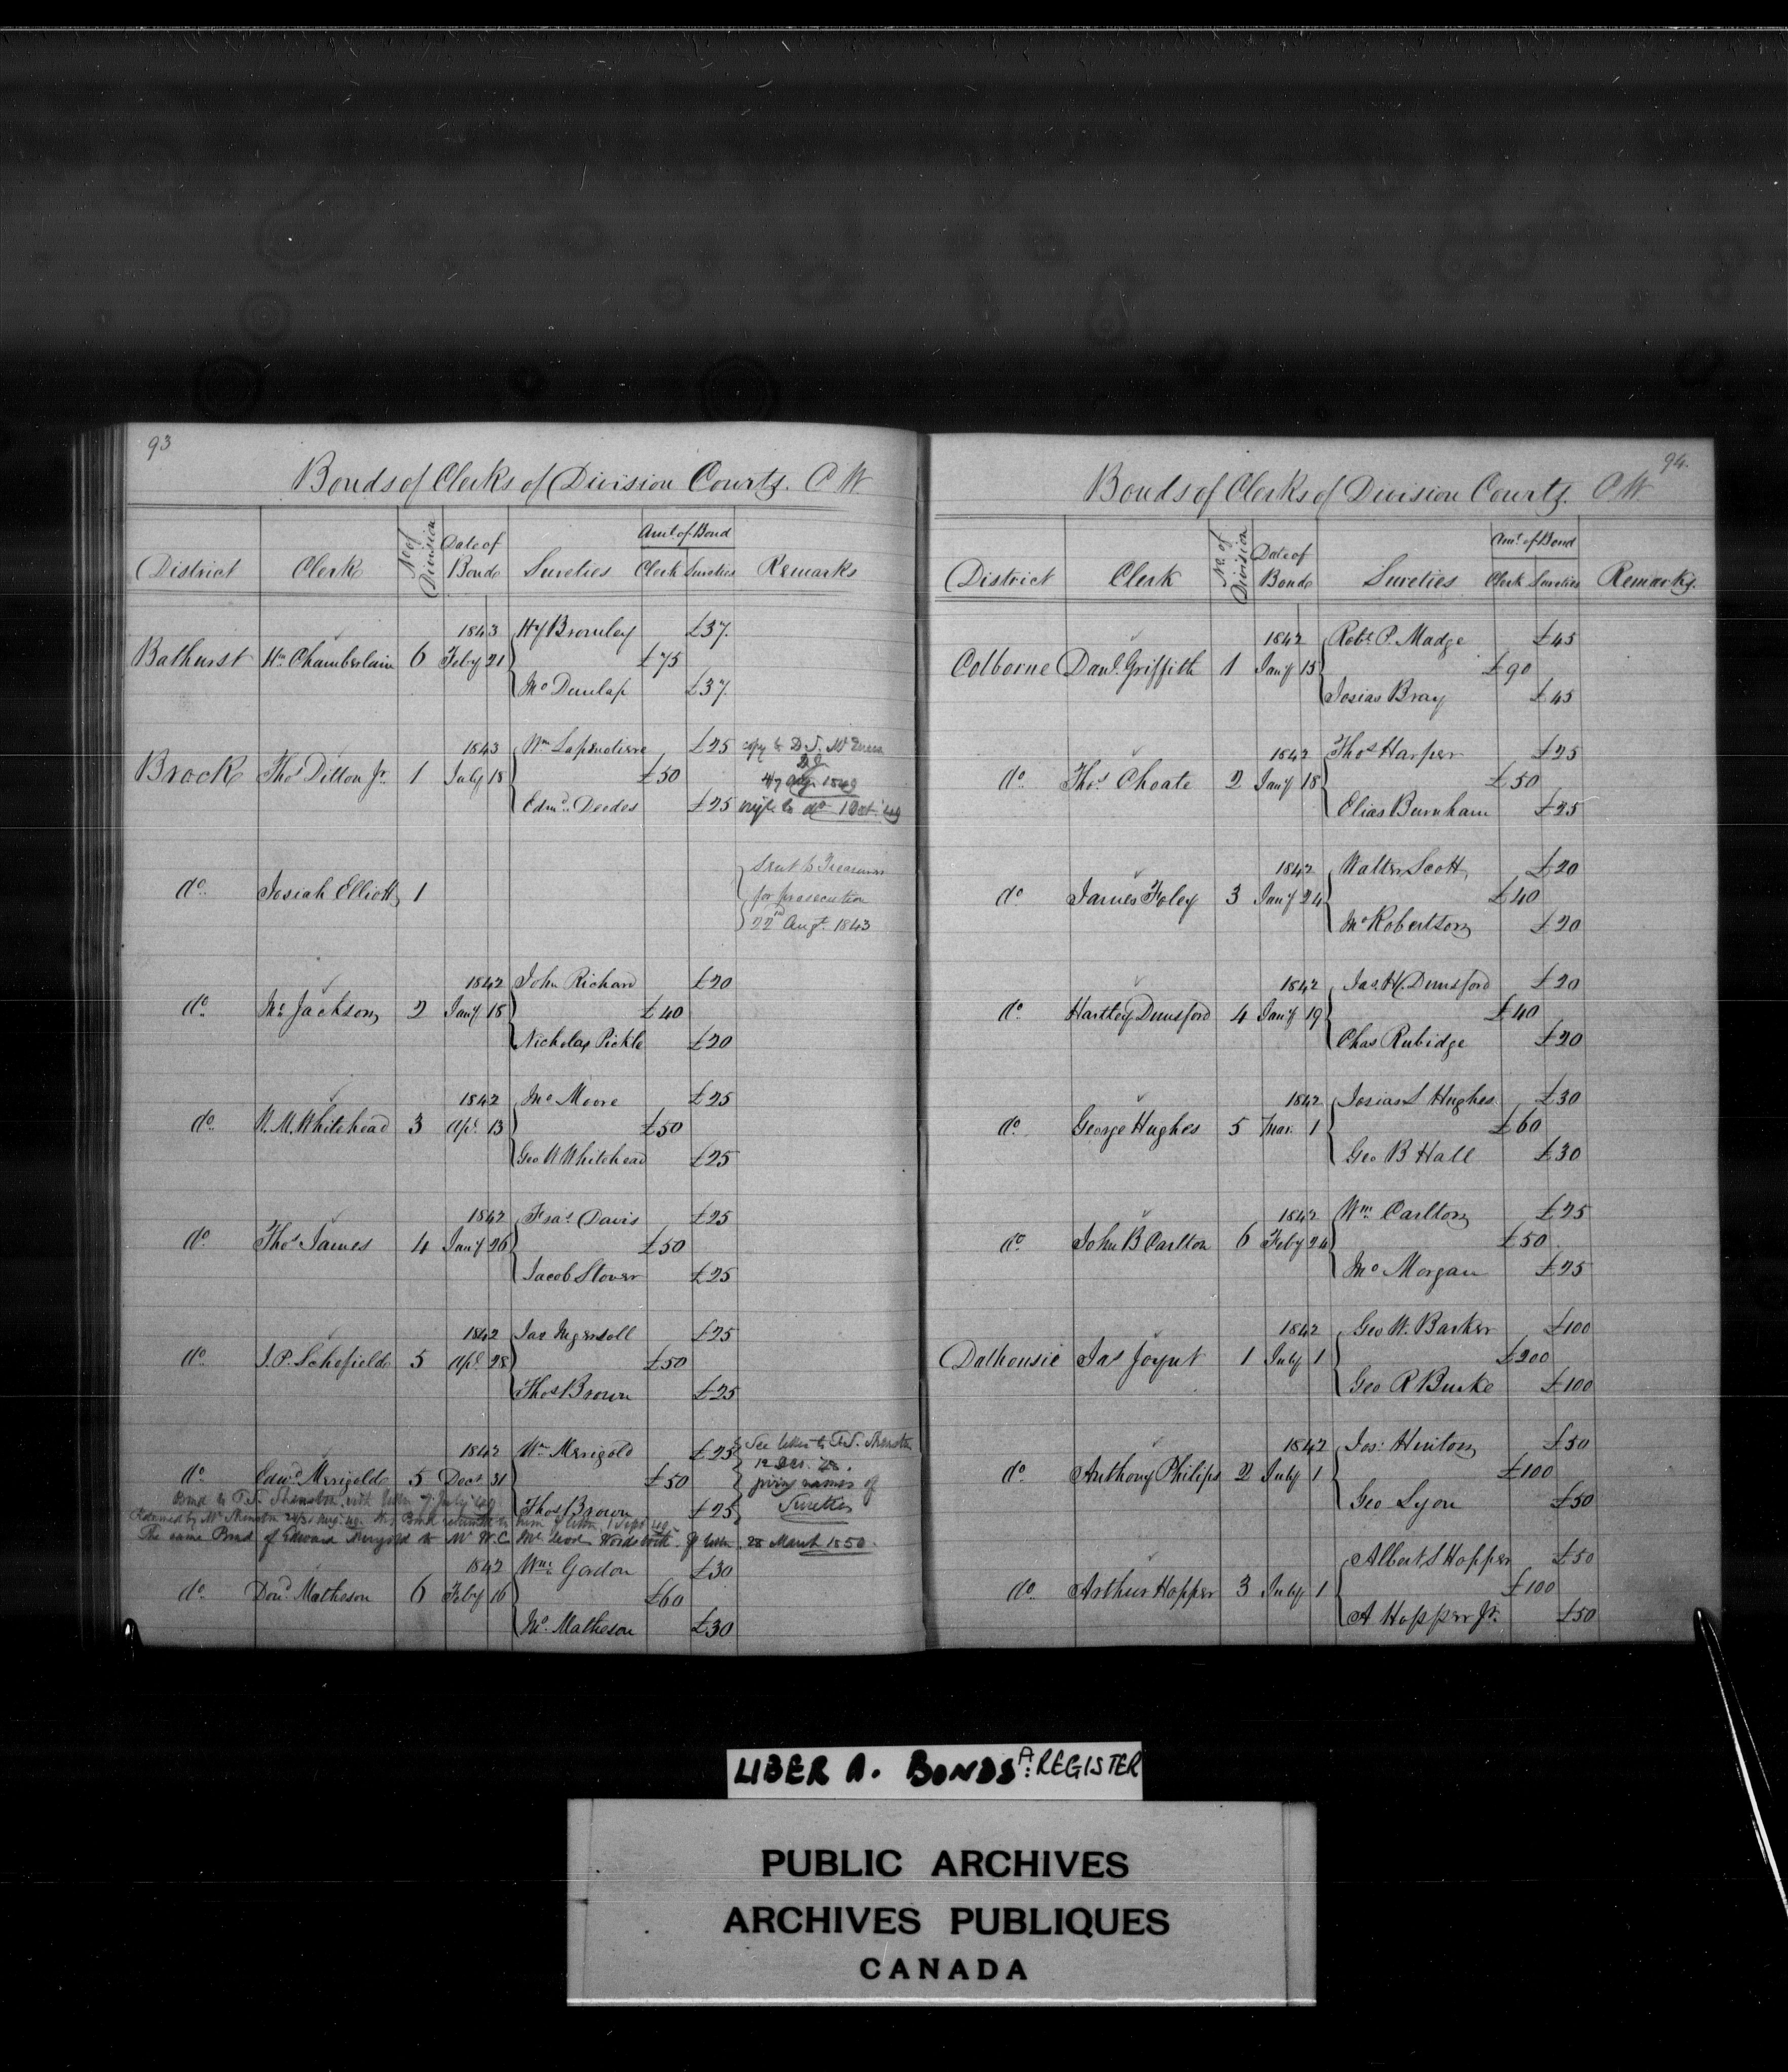 93
Bonds of Clerks of Division Courts. C W.
District Clerk No of Division Date of Bond Sureties Amt. of Bond Clerk Sureties Remarks
1843 Hy Bromley £37.
Bathurst Wm Chamberlain 6 Feby 21 £75
Jno Dunlap £37
1843 Wm Lapenotiere £25 copy to D. S.
Brock Thos Ditton Jr. 1 July 18 £50 Augt 1849
Edmd. Deedes £25 do 1 Oct. 49
Sent to Treasurer
do Josiah Elliott 1 for prosecution
22nd Augt. 1843
1842 John Richard £20
do Jno Jackson 2 Jany 18 £40
Nicholas Pickle £20
1842 Jno Moore £25
do W. M. Whitehead 3 Apl. 13 £50
Geo W Whitehead £25
1842 Fras Davis £25
do Thos James 4 Jany 26 £50
Jacob Stover £25
1842 Jas Ingersoll £25
do J. P. Schofield 5 Apl 28 £50
Thos Brown £25
1842 Wm Merigold £25 See letter to T. S. Shenston
12 Dec.
do Edwd Merigold 5 Decr 31 £50 giving names of
Thos Brown £25 Sureties
Bond to T. S. Shenston with letter 7 July 49
Returned by Mr Shenston Aug. 49. Bond returned to him 1 Sept 49
The same Bond of Edward Merigold to Mr W. C. McLeod Woodstock 28 March 1850.
1842 Wm Gordon £30
do Dond Matheson 6 Feby 16 £60
Jno. Matheson £30
94.
Bonds of Clerks of Division Courts. C W
District Clerk No. of Division Date of Bond Sureties Amt. of Bond Clerk Sureties Remarks.
1842 Robt. P. Madge £45
Colborne Danl. Griffith 1 Jany 15 £90
Josias Bray £45
1842 Thos Harper £25
do Thos. Choate 2 Jany 18 £50
Elias Burnham £25
1842 Walter Scott £20
do James Foley 3 Jany 24 £40
Jno Robertson £20
1842 Jas. H. Dunsford £20
do Hartley Dunsford 4 Jany 19 £40
Chas Rubidge £20
1842 Josias S Hughes £30
do George Hughes 5 Mar. 1 £60
Geo B Hall £30
1842 Wm. Carlton £25
do John B Carlton 6 Feby 24 £50
Jno Morgan £25
1842 Geo W. Barker £100
Dalhousie Jas Joynt 1 July 1 £200
Geo R Burke £100
1842 Jos. Hinton £50
do Anthony Philips 2 July 1 £100
Geo Lyon £50
Albert S Hopper £50
do Arthur Hopper 3 July 1 £100
A Hopper Jr. £50
LIBER A. BONDS A: REGISTER
PUBLIC ARCHIVES
ARCHIVES PUBLIQUES
CANADA